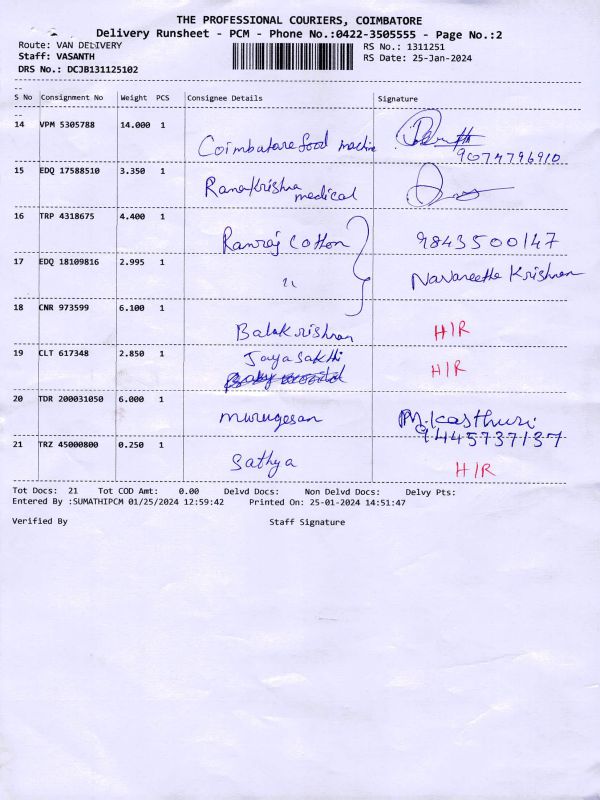 THE PROFESSIONAL COURIERS, COIMBATORE
Delivery Runsheet - PCM - Phone No.:0422-3505555 - Page No.:2
Route: VAN DELIVERY
RS No.: 1311251
Staff: VASANTH
RS Date: 25-Jan-2024
DRS No.: DCJB131125102
--
S No Consignment No Weight PCS Consignee Details Signature
--
14 VPM 5305788 14.000 1
Coimbatore food machine
9074796910
15 EDQ 17588510 3.350 1
Ramakrishna medical
16 TRP 4318675 4.400 1
Ramraj Cotton 9843500147
17 EDQ 18109816 2.995 1
" Navaneetha Krishnan
18 CNR 973599 6.100 1
Balakrishnan H/R
19 CLT 617348 2.850 1
Jayasakthi H/R
20 TDR 200031050 6.000 1
murugesan M.Kasthuri
9445737137
21 TRZ 45000800 0.250 1
Sathya H/R
Tot Docs: 21 Tot COD Amt: 0.00 Delvd Docs: Non Delvd Docs: Delvy Pts:
Entered By :SUMATHIPCM 01/25/2024 12:59:42 Printed On: 25-01-2024 14:51:47
Verified By Staff Signature